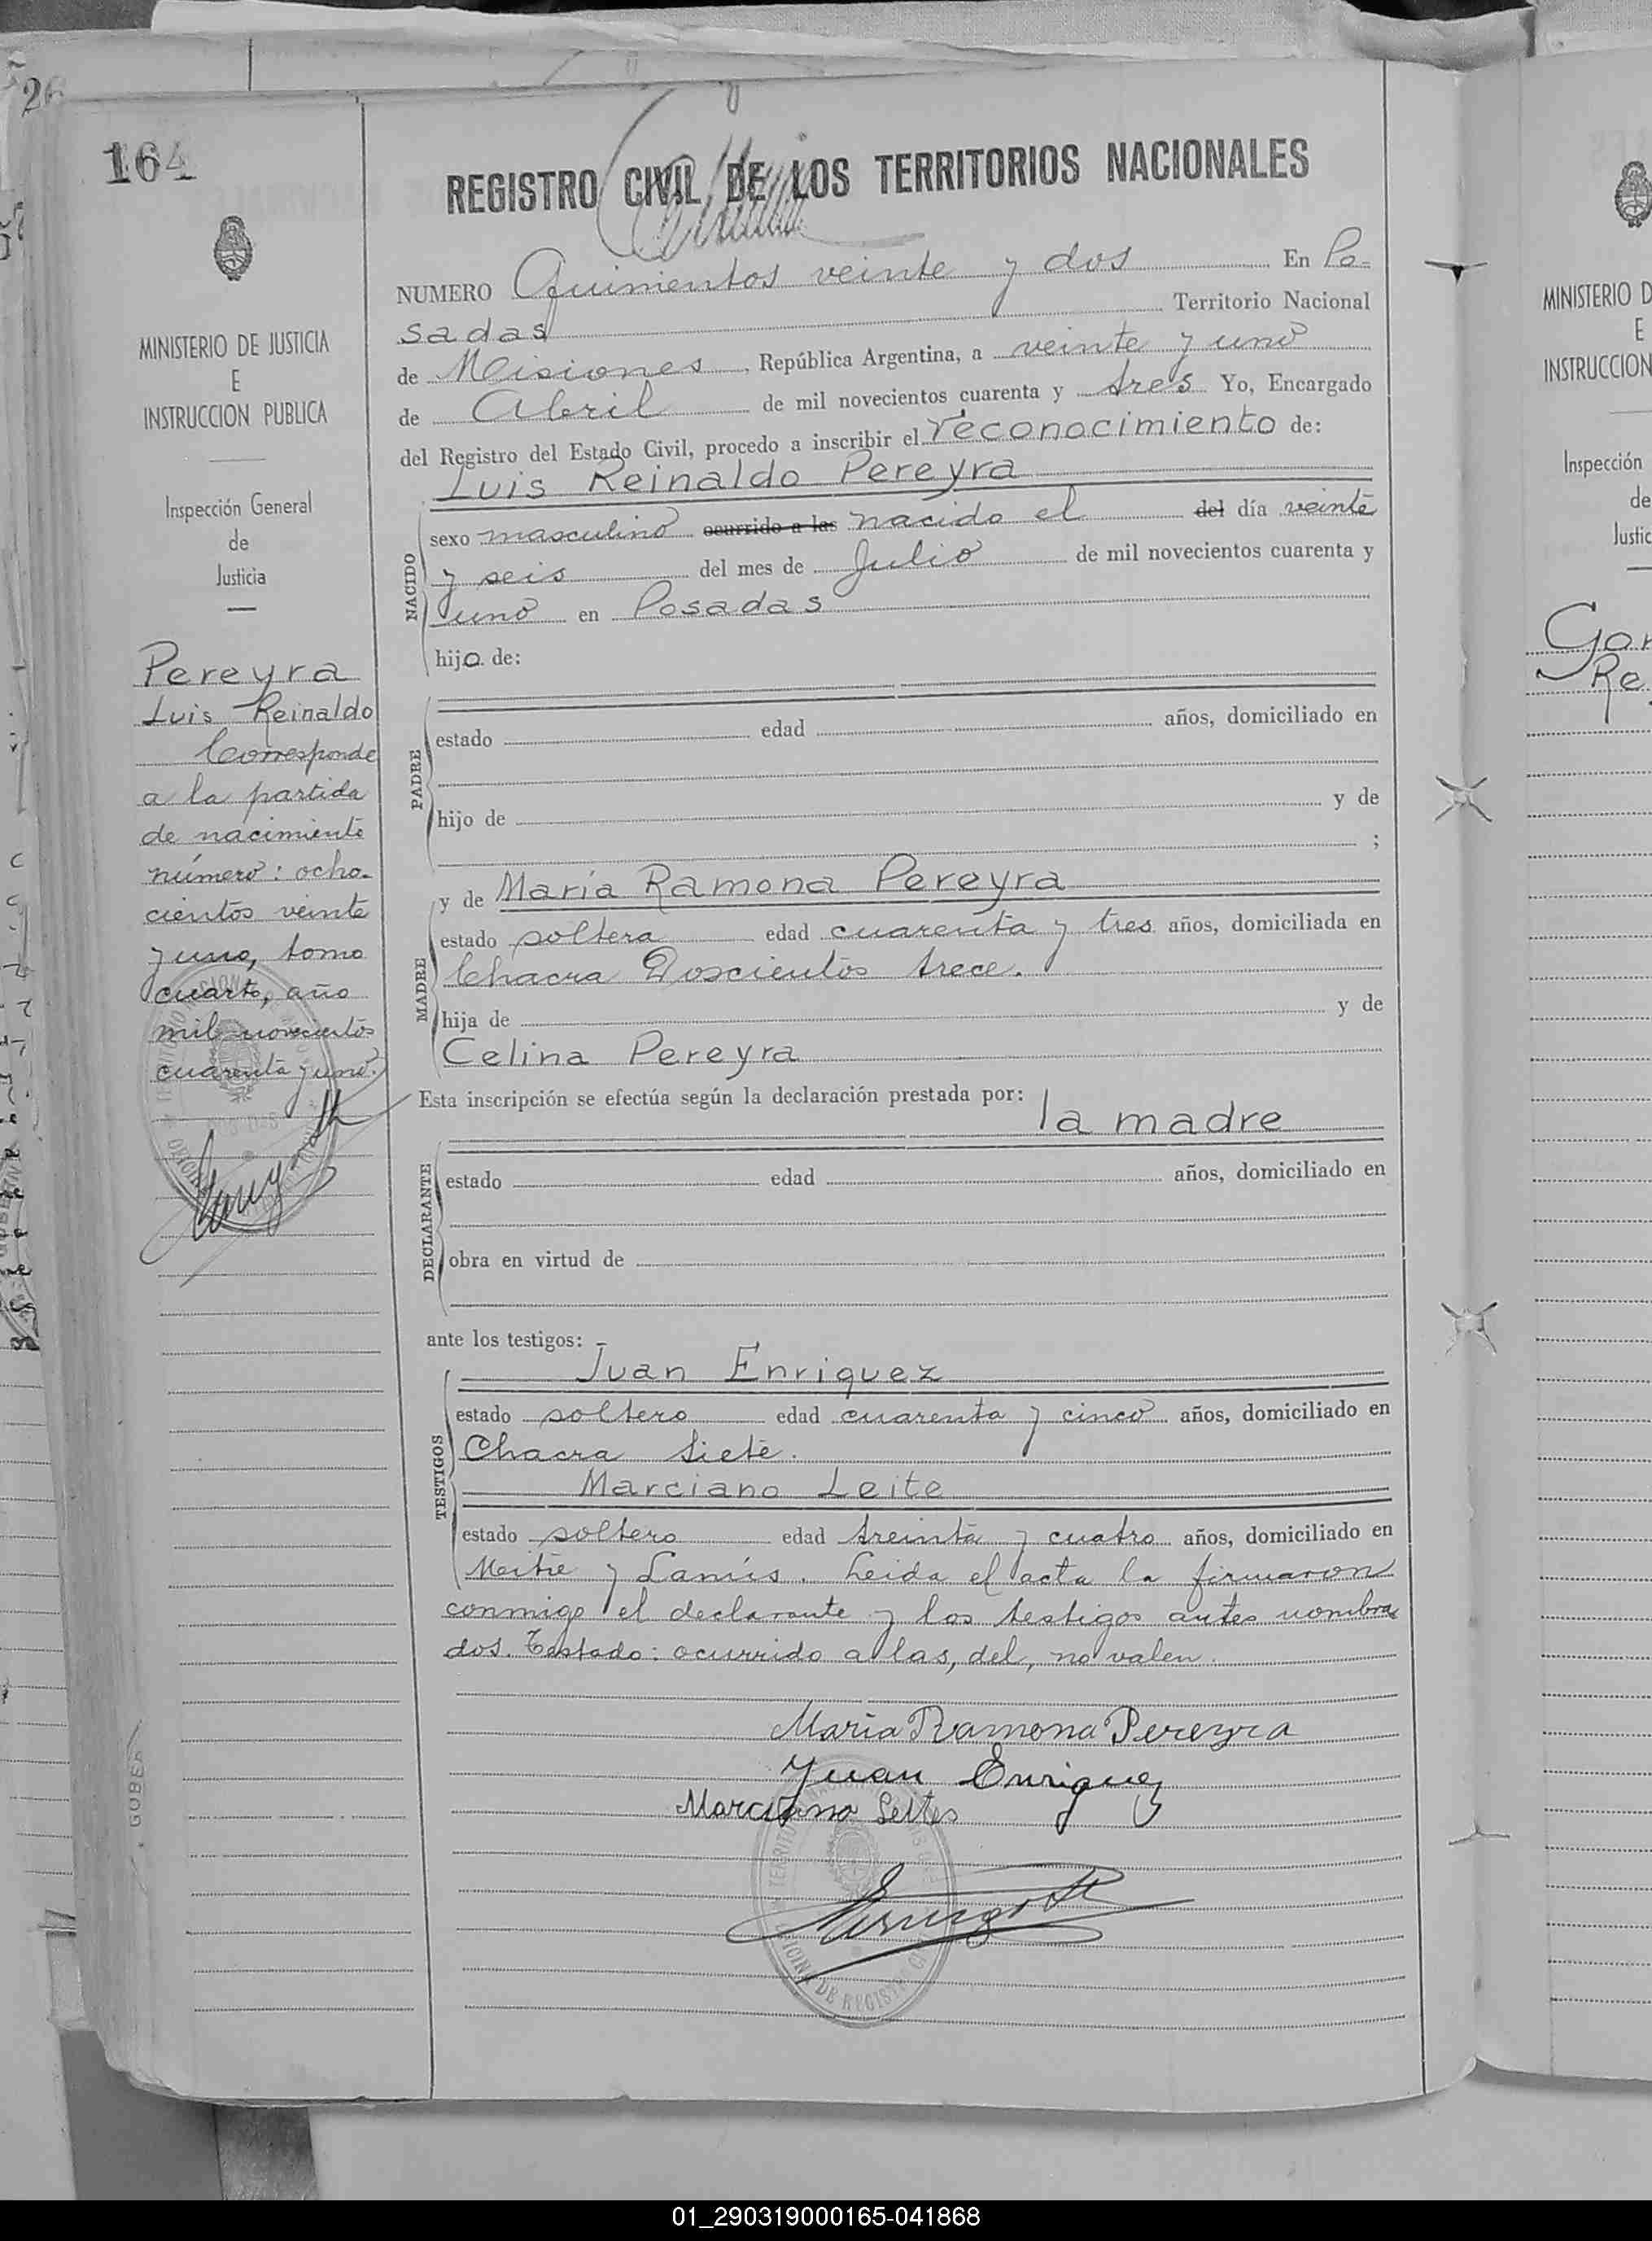 26
164
MINISTERIO DE JUSTICIA
E
INSTRUCCION PUBLICA
Inspección General
de
Justicia
Pereyra
Luis Reinaldo
Corresponde
a la partida
de nacimiento
número: ocho-
cientos veinte
y uno, tomo
cuarto, año
mil novecientos
cuarenta y uno.
REGISTRO CIVIL DE LOS TERRITORIOS NACIONALES
NUMERO Quinientos veinte y dos En Po-
sadas Territorio Nacional
de Misiones, República Argentina, a veinte y uno
de Abril de mil novecientos cuarenta y tres Yo, Encargado
del Registro del Estado Civil, procedo a inscribir el reconocimiento de:
Luis Reinaldo Pereyra
NACIDO
sexo masculino ocurrido a las nacido el del día veinte
y seis del mes de Julio de mil novecientos cuarenta y
uno en Posadas
hijo de:
PADRE
estado edad años, domiciliado en
hijo de y de
;
y de María Ramona Pereyra
MADRE
estado soltera edad cuarenta y tres años, domiciliada en
Chacra Doscientos trece.
hija de y de
Celina Pereyra
Esta inscripción se efectúa según la declaración prestada por: la madre
DECLARANTE
estado edad años, domiciliado en
obra en virtud de
ante los testigos:
Juan Enriquez
TESTIGOS
estado soltero edad cuarenta y cinco años, domiciliado en
Chacra Siete.
Marciano Leite
estado soltero edad treinta y cuatro años, domiciliado en
Mitre y Lanús. Leida el acta la firmaron
conmigo el declarante y los testigos antes nombra
dos. Testado: ocurrido a las, del, no valen.
María Ramona Pereyra
Juan Enriquez
Marciano Leites
OFICINA DE REGISTRO
GOBER
MINISTERIO D
E
INSTRUCCION
Inspección
de
Justic
Gon
Re
01_290319000165-041868